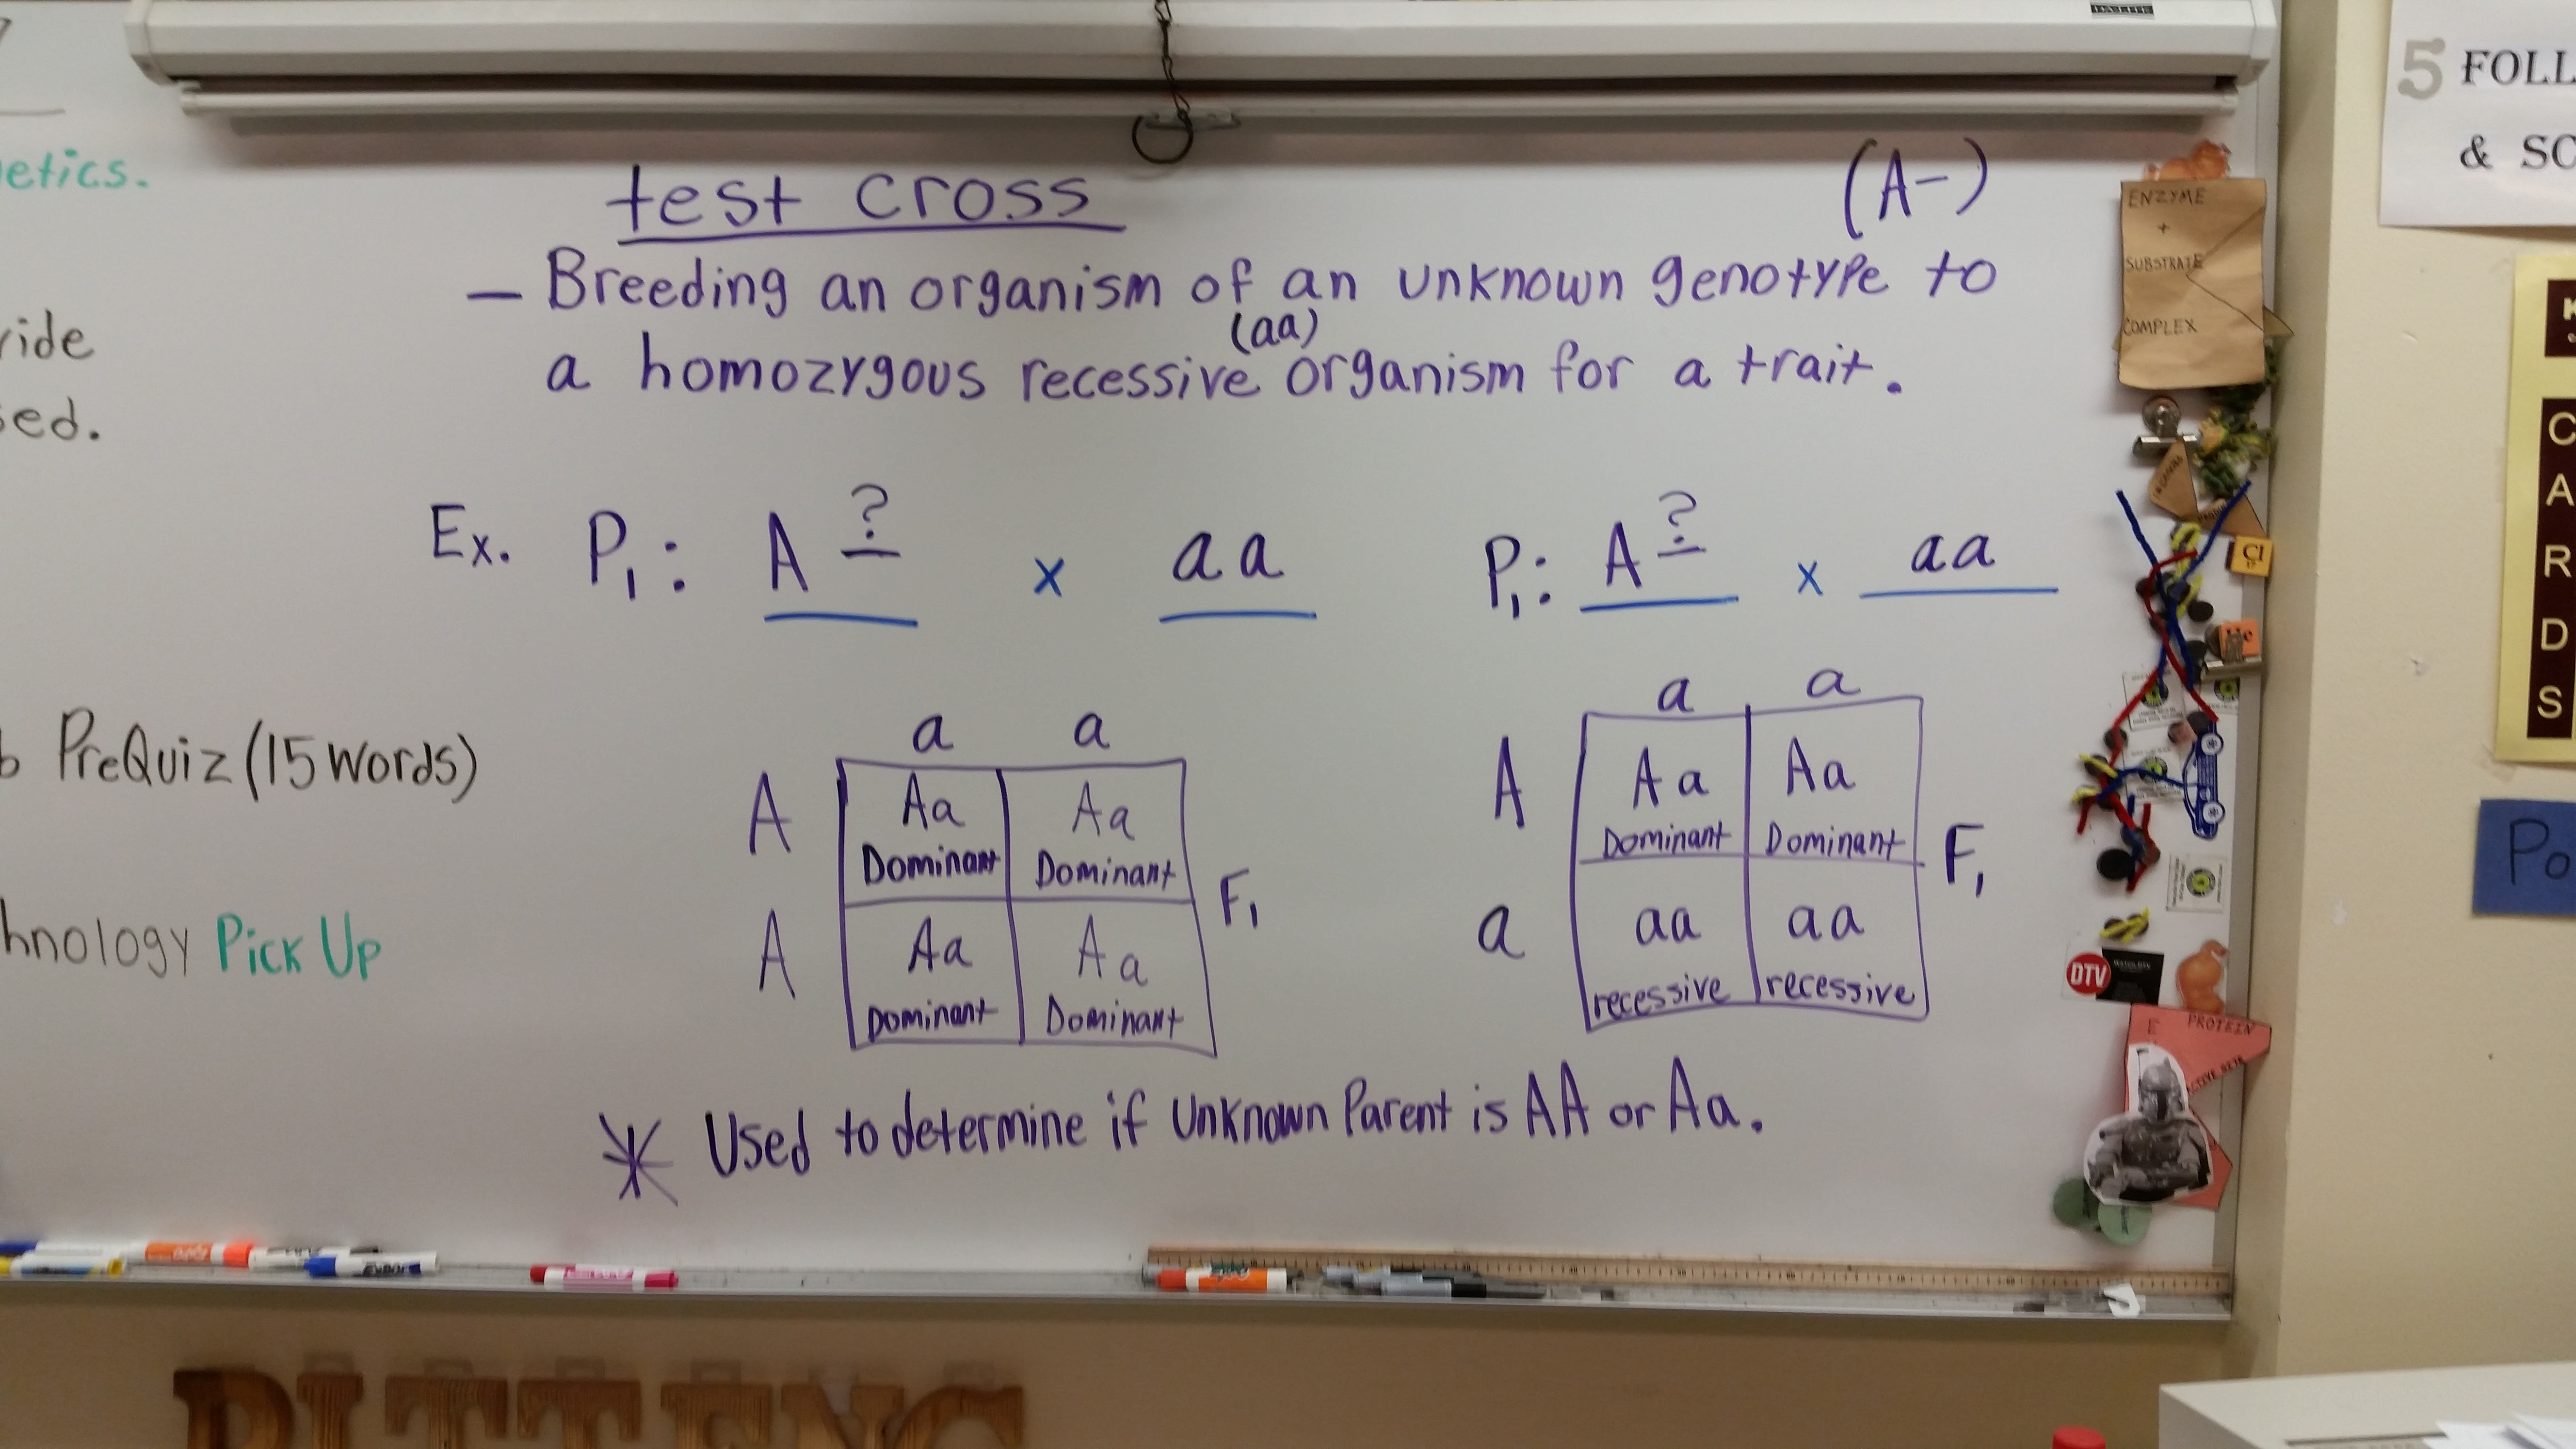 etics.
ride
sed.
PreQuiz (15 words)
hnology Pick Up
test cross
(A-)
— Breeding an organism of an unknown genotype to
(aa)
a homozygous recessive organism for a trait.
Ex. P₁: A ? x aa
P₁: A ? x aa
a a
A Aa Aa
Dominant Dominant
A Aa Aa
Dominant Dominant
F₁
a a
A Aa Aa
Dominant Dominant
a aa aa
recessive recessive
F₁
* Used to determine if unknown Parent is AA or Aa.
ENZYME
+
SUBSTRATE
COMPLEX
Cl
He
DTV
PROTEIN
5 FOLL
& SC
K
CARDS
Po